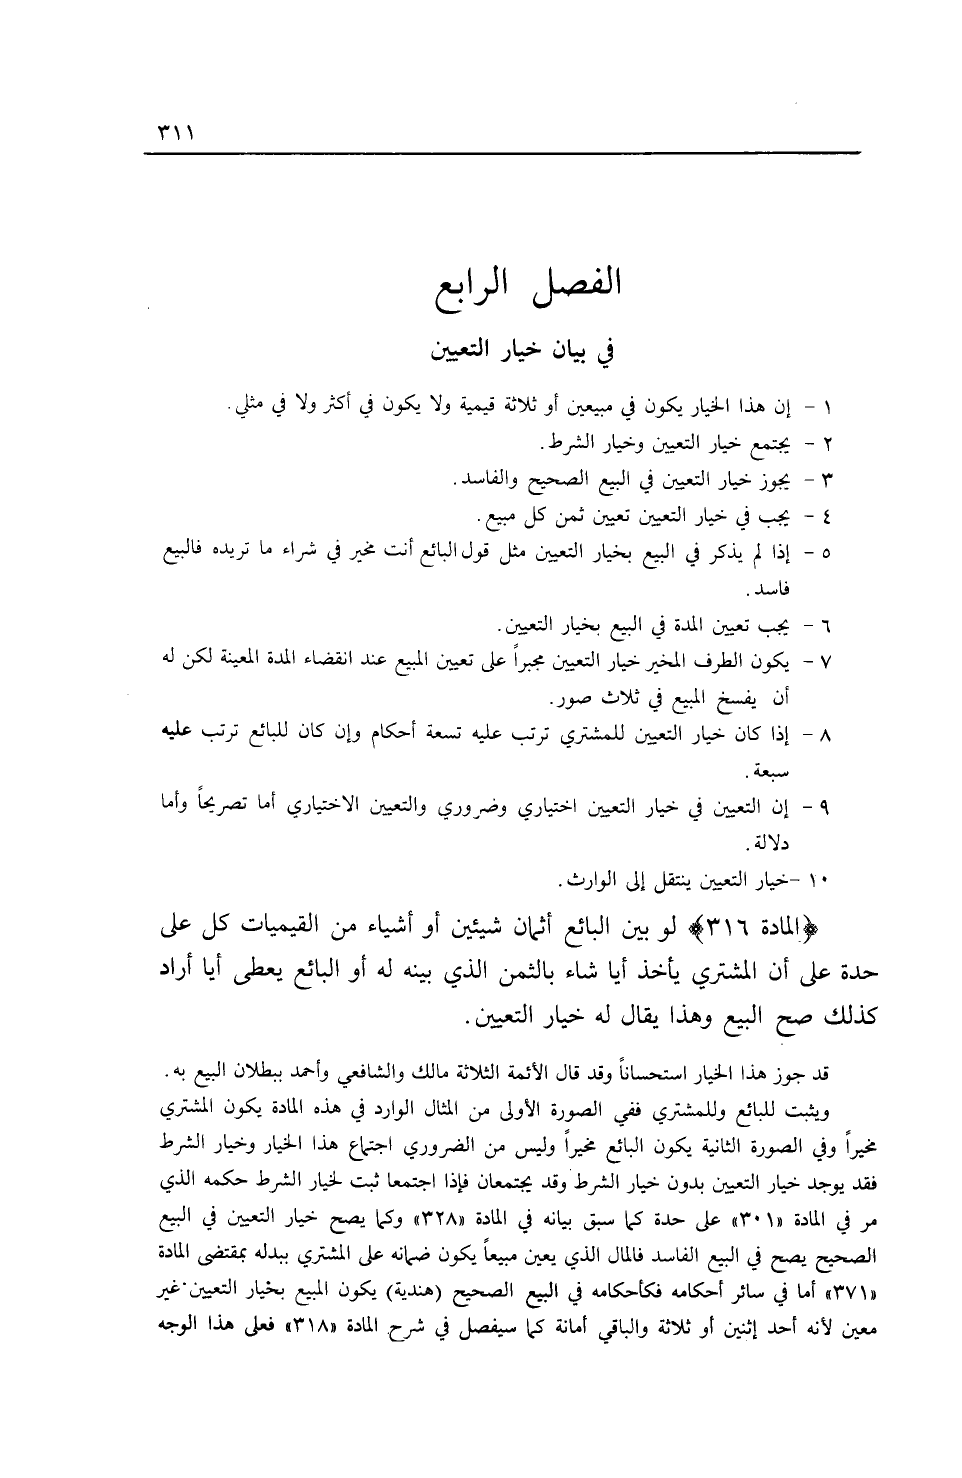 ٣١١
الفصل الرابع
في بيان خيار التعيين
١ - إن هذا الخيار يكون في مبيعين أو ثلاثة قيمية ولا يكون في أكثر ولا في مثلي.
٢ - يجتمع خيار التعيين وخيار الشرط.
٣ - يجوز خيار التعيين في البيع الصحيح والفاسد.
٤ - يجب في خيار التعيين تعيين ثمن كل مبيع.
٥ - إذا لم يذكر في البيع بخيار التعيين مثل قول البائع أنت مخير في شراء ما تريده فالبيع
فاسد.
٦ - يجب تعيين المدة في البيع بخيار التعيين.
٧ - يكون الطرف المخير خيار التعيين مجبراً على تعيين المبيع عند انقضاء المدة المعينة لكن له
أن يفسخ المبيع في ثلاث صور.
٨ - إذا كان خيار التعيين للمشتري ترتب عليه تسعة أحكام وإن كان للبائع ترتب عليه
سبعة.
٩ - إن التعيين في خيار التعيين اختياري وضروري والتعيين الاختياري أما تصريحاً وأما
دلالة.
١٠ -خيار التعيين ينتقل إلى الوارث.
﴿المادة ٣١٦﴾ لو بين البائع أثمان شيئين أو أشياء من القيميات كل على
حدة على أن المشتري يأخذ أيا شاء بالثمن الذي بينه له أو البائع يعطى أيا أراد
كذلك صح البيع وهذا يقال له خيار التعيين.
قد جوز هذا الخيار استحساناً وقد قال الأئمة الثلاثة مالك والشافعي وأحمد ببطلان البيع به.
ويثبت للبائع وللمشتري ففي الصورة الأولى من المثال الوارد في هذه المادة يكون المشتري
مخيراً وفي الصورة الثانية يكون البائع مخيراً وليس من الضروري اجتماع هذا الخيار وخيار الشرط
فقد يوجد خيار التعيين بدون خيار الشرط وقد يجتمعان فإذا اجتمعا ثبت لخيار الشرط حكمه الذي
مر في المادة «٣٠١» على حدة كما سبق بيانه في المادة «٣٢٨» وكما يصح خيار التعيين في البيع
الصحيح يصح في البيع الفاسد فالمال الذي يعين مبيعاً يكون ضمانه على المشتري ببدله بمقتضى المادة
«٣٧١» أما في سائر أحكامه فكأحكامه في البيع الصحيح (هندية) يكون المبيع بخيار التعيين غير
معين لأنه أحد إثنين أو ثلاثة والباقي أمانة كما سيفصل في شرح المادة «٣١٨» فعلى هذا الوجه